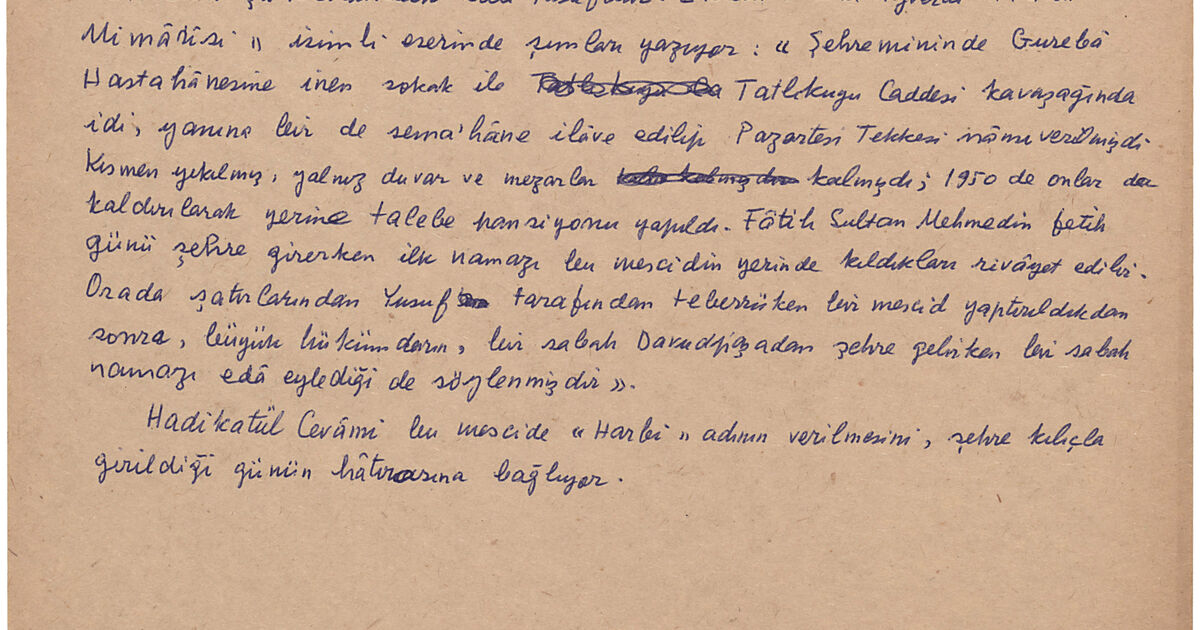 Mimârîsi » isimli eserinde şunları yazıyor : « Şehremininde Gurebâ
Hastahânesine inen sokak ile Tatlıkuyu Caddesi kavaşağında
idi, yanına bir de sema'hâne ilâve edilip Pazartesi Tekkesi nâmı verilmişdi.
Kısmen yıkılmış, yalnız duvar ve mezarlar kalmışdı; 1950 de onlar da
kaldırılarak yerine talebe pansiyonu yapıldı. Fâtih Sultan Mehmedin fetih
günü şehre girerken ilk namazı bu mescidin yerinde kıldıkları rivâyet edilir.
Orada şatırlarından Yusuf tarafından teberrüken bir mescid yaptırıldıkdan
sonra, büyük hükümdarın, bir sabah Davudpaşadan şehre gelirken bir sabah
namazı edâ eylediği de söylenmişdir ».
Hadikatül Cevâmi bu mescide « Harbî » adının verilmesini, şehre kılıçla
girildiği günün hâtırasına bağlıyor.